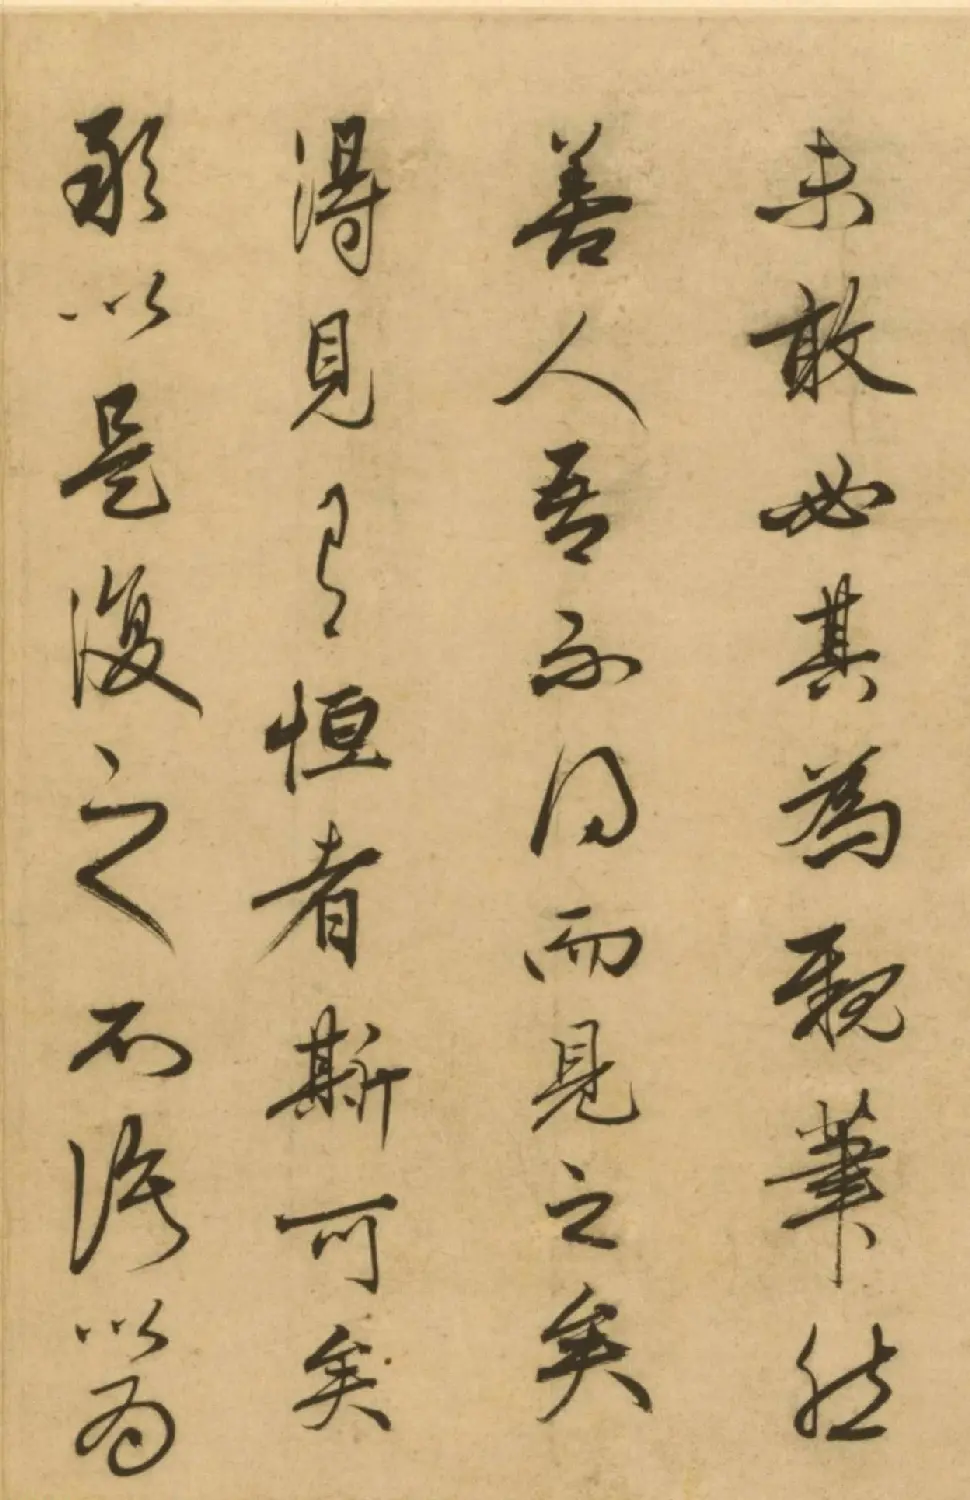 未敢必其為親筆然
善人吾不得而見之矣
得見有恒者斯可矣
以是復之不以為